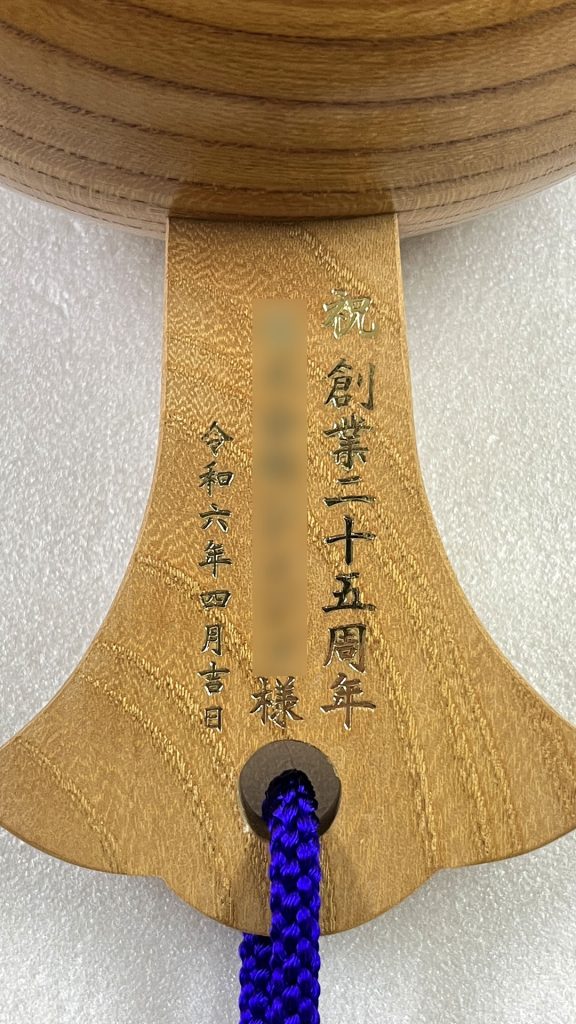 祝 創業二十五周年
様
令和六年四月吉日